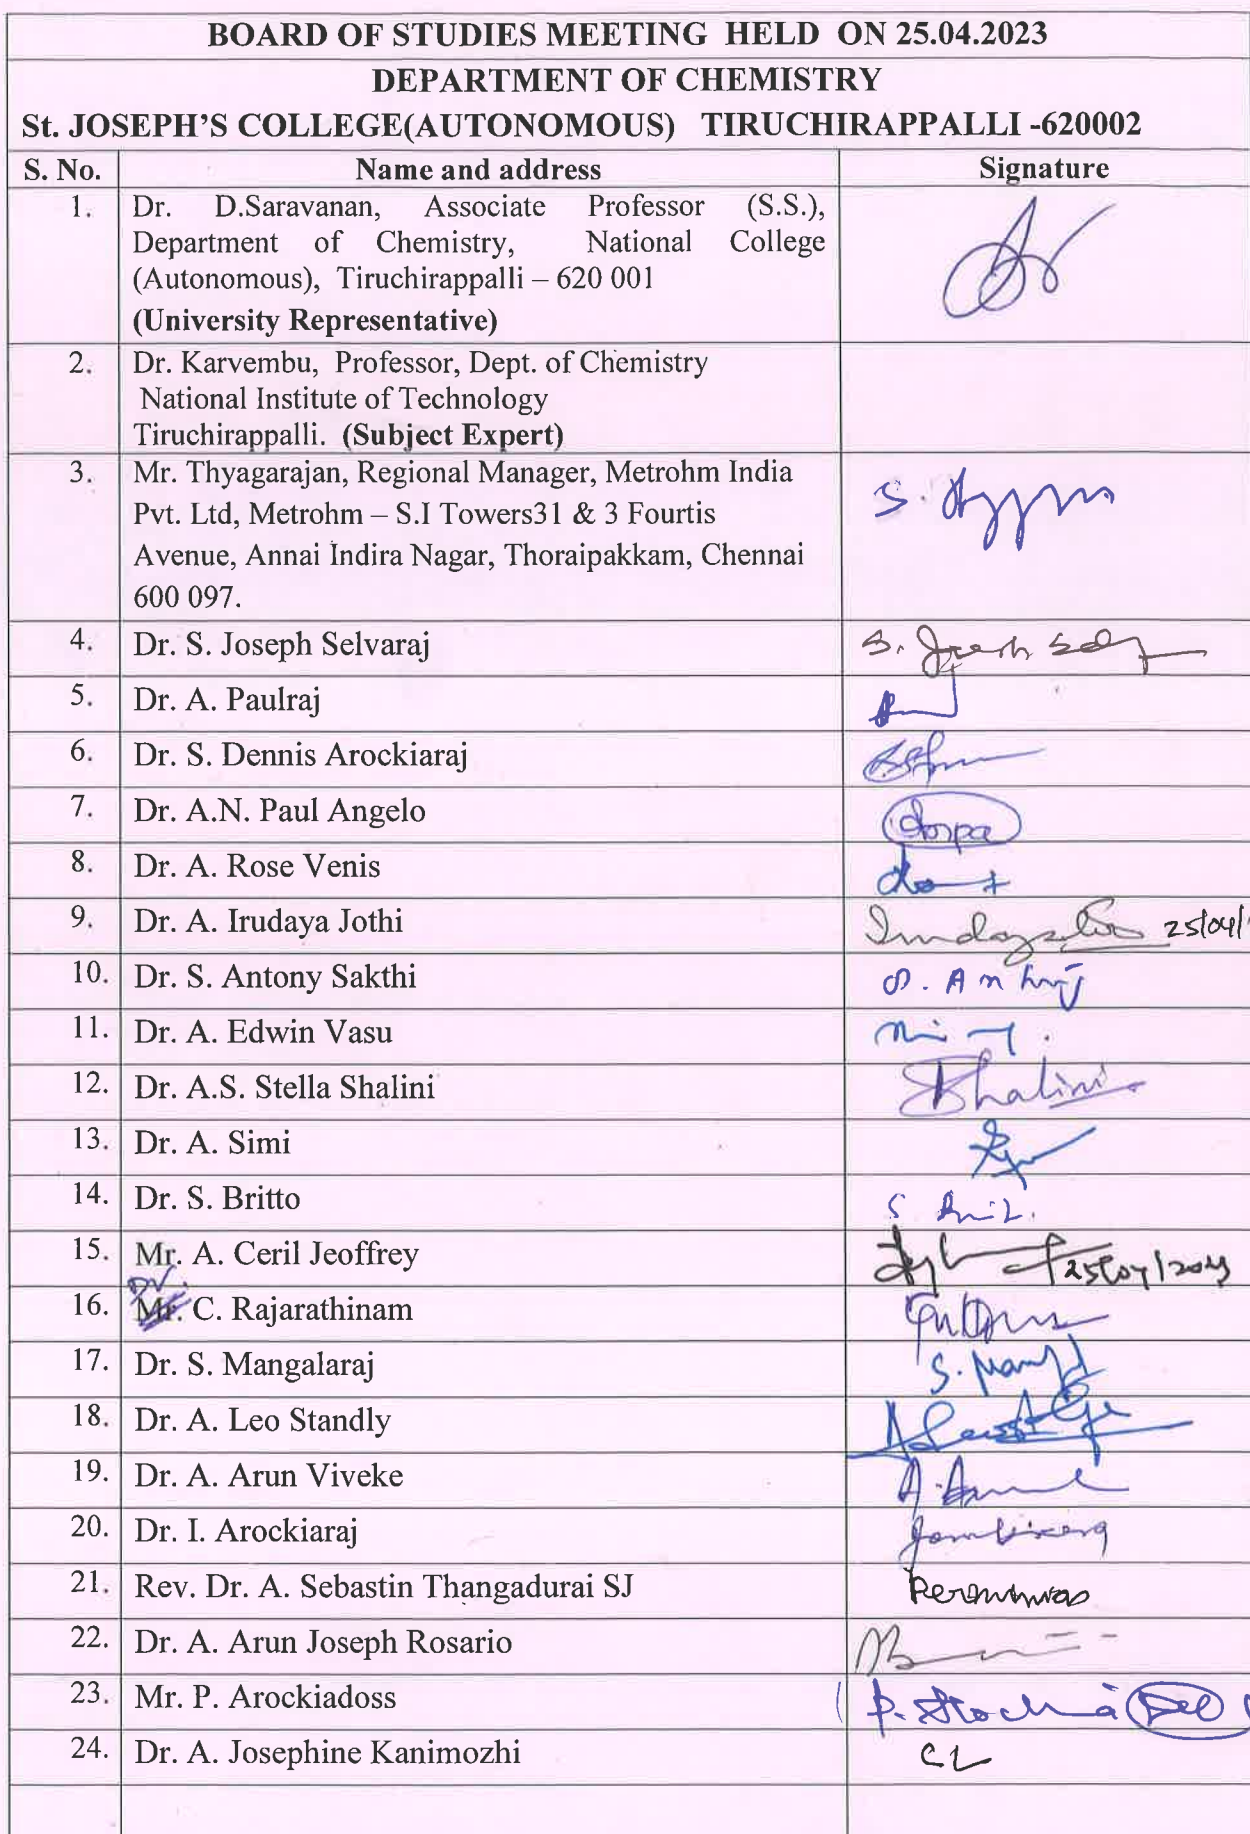 BOARD OF STUDIES MEETING HELD ON 25.04.2023
DEPARTMENT OF CHEMISTRY
St. JOSEPH'S COLLEGE(AUTONOMOUS) TIRUCHIRAPPALLI -620002
S. No. Name and address Signature
1. Dr. D.Saravanan, Associate Professor (S.S.),
Department of Chemistry, National College
(Autonomous), Tiruchirappalli – 620 001
(University Representative)
2. Dr. Karvembu, Professor, Dept. of Chemistry
National Institute of Technology
Tiruchirappalli. (Subject Expert)
3. Mr. Thyagarajan, Regional Manager, Metrohm India
Pvt. Ltd, Metrohm – S.I Towers31 & 3 Fourtis
Avenue, Annai Indira Nagar, Thoraipakkam, Chennai
600 097.
4. Dr. S. Joseph Selvaraj
5. Dr. A. Paulraj
6. Dr. S. Dennis Arockiaraj
7. Dr. A.N. Paul Angelo
8. Dr. A. Rose Venis
9. Dr. A. Irudaya Jothi 25/04/
10. Dr. S. Antony Sakthi
11. Dr. A. Edwin Vasu
12. Dr. A.S. Stella Shalini Shalini
13. Dr. A. Simi
14. Dr. S. Britto
15. Mr. A. Ceril Jeoffrey 25/04/2023
Dr.
16. Mr. C. Rajarathinam
17. Dr. S. Mangalaraj
18. Dr. A. Leo Standly
19. Dr. A. Arun Viveke
20. Dr. I. Arockiaraj
21. Rev. Dr. A. Sebastin Thangadurai SJ
22. Dr. A. Arun Joseph Rosario
23. Mr. P. Arockiadoss
24. Dr. A. Josephine Kanimozhi CL